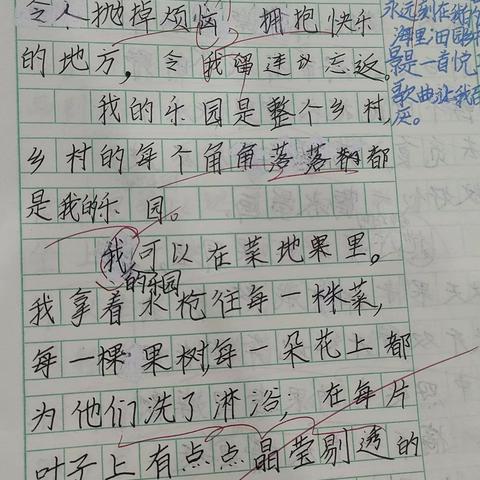 令人抛掉烦恼。拥抱快乐
的地方，令我留连忘返。
我的乐园是整个乡村，
乡村的每个角角落落都
是我的乐园。
我可以在菜地果里。
的乐园
我拿着水枪往每一株菜，
每一棵果树，每一朵花上都
为他们洗了淋浴；在每片
叶子上有点点晶莹剔透的
永远刻在我的
海里。田园
是一首悦
歌曲让我百